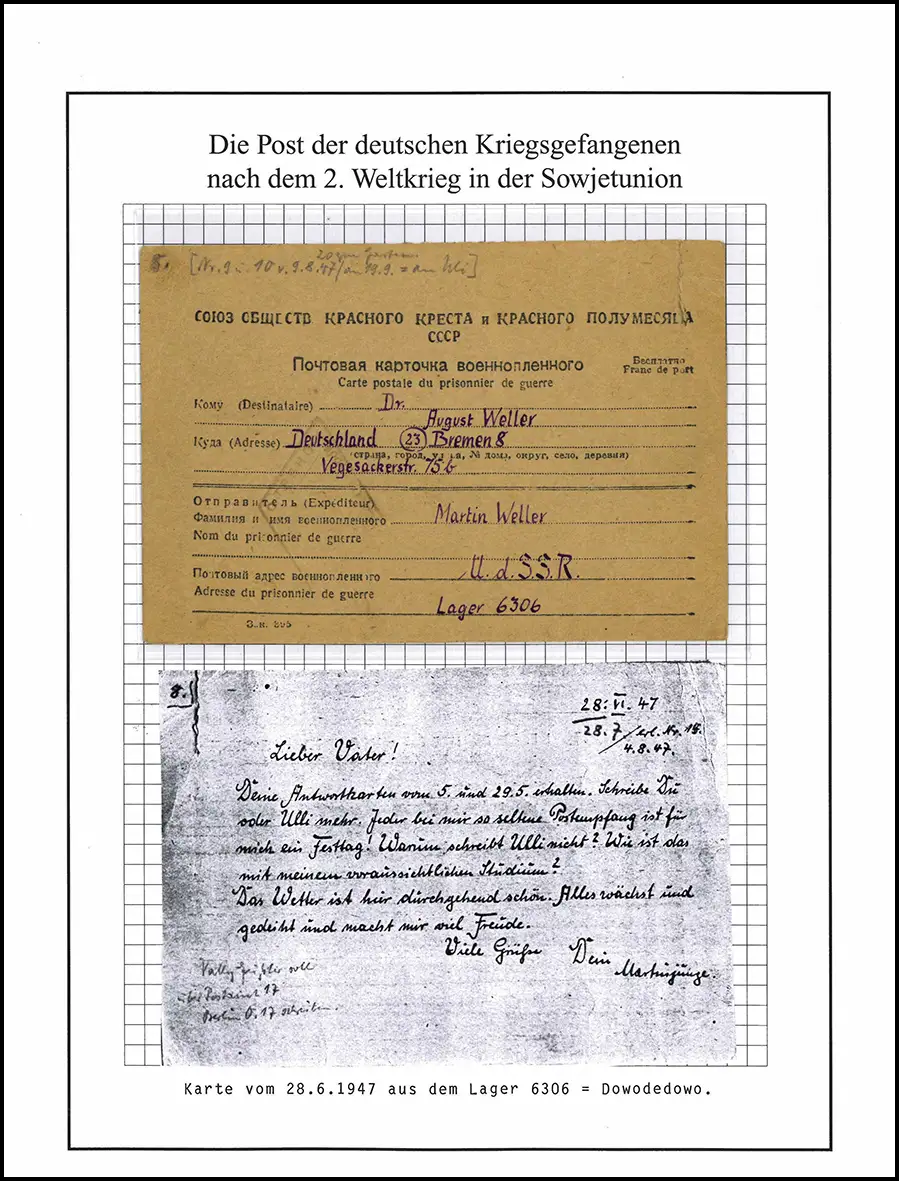 Die Post der deutschen Kriegsgefangenen
nach dem 2. Weltkrieg in der Sowjetunion
8. [Nr. 9 u. 10 v. 9.8.47/an 19.9. = an Ulli]
СОЮЗ ОБЩЕСТВ КРАСНОГО КРЕСТА и КРАСНОГО ПОЛУМЕСЯЦА
СССР
Почтовая карточка военнопленного
Бесплатно
Carte postale du prisonnier de guerre
Franc de port
Кому (Destinataire) Dr.
August Weller
Куда (Adresse) Deutschland (23) Bremen 8
страна, город, № дома, округ, село, деревня)
Vegesackerstr. 75b
Отправитель (Expéditeur)
Фамилия и имя военнопленного Martin Weller
Nom du prisonnier de guerre
Почтовый адрес военнопленного U.d.S.S.R.
Adresse du prisonnier de guerre
Lager 6306
Зак. 895
8.
28. VI. 47
28.7/erl. Nr. 15.
4.8.47.
Lieber Vater!
Deine Antwortkarten vom 5. und 29.5. erhalten. Schreibe Du
oder Ulli mehr. Jeder bei mir so seltene Postempfang ist für
mich ein Festtag! Warum schreibt Ulli nicht? Wie ist das
mit meinem voraussichtlichen Studium?
Das Wetter ist hier durchgehend schön. Alles wächst und
gedeiht und macht mir viel Freude.
Viele Grüße Dein
Martinjunge.
soll
Postamt 17
Berlin O. 17 schreiben.
Karte vom 28.6.1947 aus dem Lager 6306 = Dowodedowo.